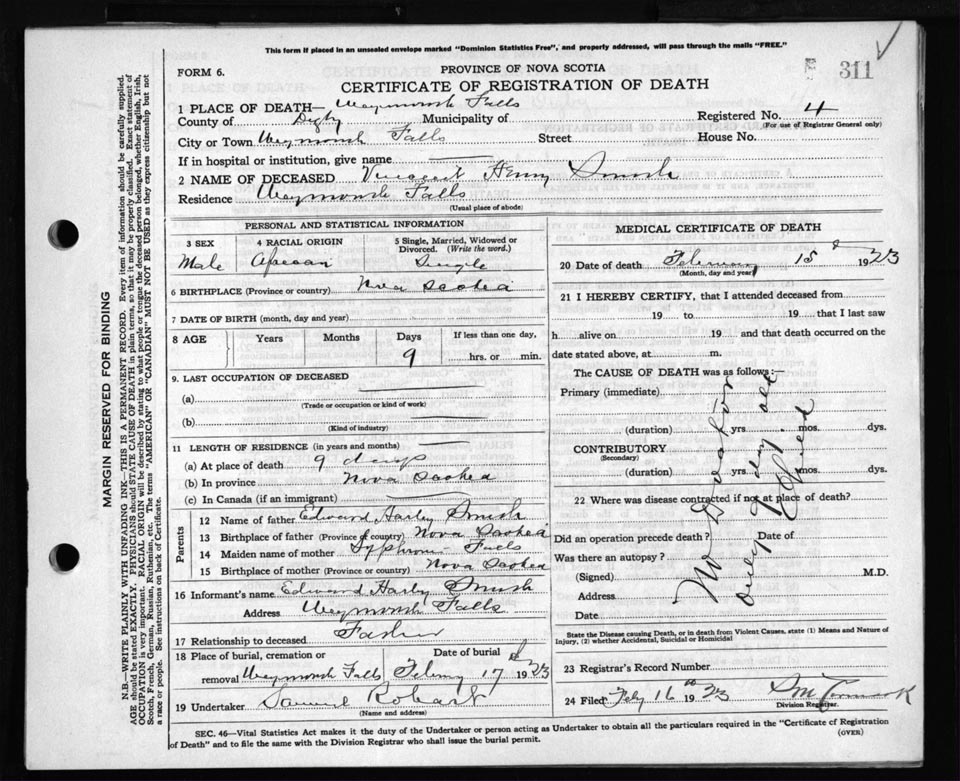 This form if placed in an unsealed envelope marked "Dominion Statistics Free", and properly addressed, will pass through the mails "FREE."
FORM 6.
PROVINCE OF NOVA SCOTIA
311
CERTIFICATE OF REGISTRATION OF DEATH
1 PLACE OF DEATH— Weymouth Falls
County of Digby Municipality of Registered No. 4
(For use of Registrar General only)
City or Town Weymouth Falls Street House No.
If in hospital or institution, give name
2 NAME OF DECEASED Vincent Henry Smith
Residence Weymouth Falls
(Usual place of abode)
PERSONAL AND STATISTICAL INFORMATION
3 SEX 4 RACIAL ORIGIN 5 Single, Married, Widowed or Divorced. (Write the word.)
Male African Single
6 BIRTHPLACE (Province or country) Nova Scotia
7 DATE OF BIRTH (month, day and year)
8 AGE Years Months Days If less than one day,
9 hrs. or min.
9. LAST OCCUPATION OF DECEASED
(a)
(Trade or occupation or kind of work)
(b)
(Kind of industry)
11 LENGTH OF RESIDENCE (in years and months)
(a) At place of death 9 days
(b) In province Nova Scotia
(c) In Canada (if an immigrant)
Parents
12 Name of father Edward Harley Smith
13 Birthplace of father (Province or country) Nova Scotia
14 Maiden name of mother Falls
15 Birthplace of mother (Province or country) Nova Scotia
16 Informant's name Edward Harley Smith
Address Weymouth Falls
17 Relationship to deceased Father
18 Place of burial, cremation or Date of burial
removal Weymouth Falls February 17 1923
19 Undertaker Samuel
(Name and address)
MEDICAL CERTIFICATE OF DEATH
20 Date of death February 15 1923
(Month, day and year)
21 I HEREBY CERTIFY, that I attended deceased from
19 to 19 that I last saw
h alive on 19 and that death occurred on the
date stated above, at m.
The CAUSE OF DEATH was as follows:—
Primary (immediate)
(duration) yrs. mos. dys.
CONTRIBUTORY
(Secondary)
(duration) yrs. mos. dys.
No Doctor
only 9 days old
Died
22 Where was disease contracted if not at place of death?
Did an operation precede death? Date of
Was there an autopsy?
(Signed) M.D.
Address
Date
State the Disease causing Death, or in death from Violent Causes, state (1) Means and Nature of
Injury, (2) whether Accidental, Suicidal or Homicidal
23 Registrar's Record Number
24 Filed Feby 16th 1923
Division Registrar.
SEC. 46—Vital Statistics Act makes it the duty of the Undertaker or person acting as Undertaker to obtain all the particulars required in the "Certificate of Registration
of Death" and to file the same with the Division Registrar who shall issue the burial permit.
(OVER)
MARGIN RESERVED FOR BINDING
N.B.—WRITE PLAINLY WITH UNFADING INK—THIS IS A PERMANENT RECORD. Every item of information should be carefully supplied.
AGE should be stated EXACTLY. PHYSICIANS should STATE CAUSE OF DEATH in plain terms, so that it may be properly classified. Exact statement of
OCCUPATION is very important. RACIAL ORIGIN will be described by stating to what people or tongue the deceased person belonged, whether English, Irish,
Scotch, French, German, Russian, Ruthenian, etc. The terms "AMERICAN" OR "CANADIAN" MUST NOT BE USED as they express citizenship but not
a race or people. See instructions on back of Certificate.